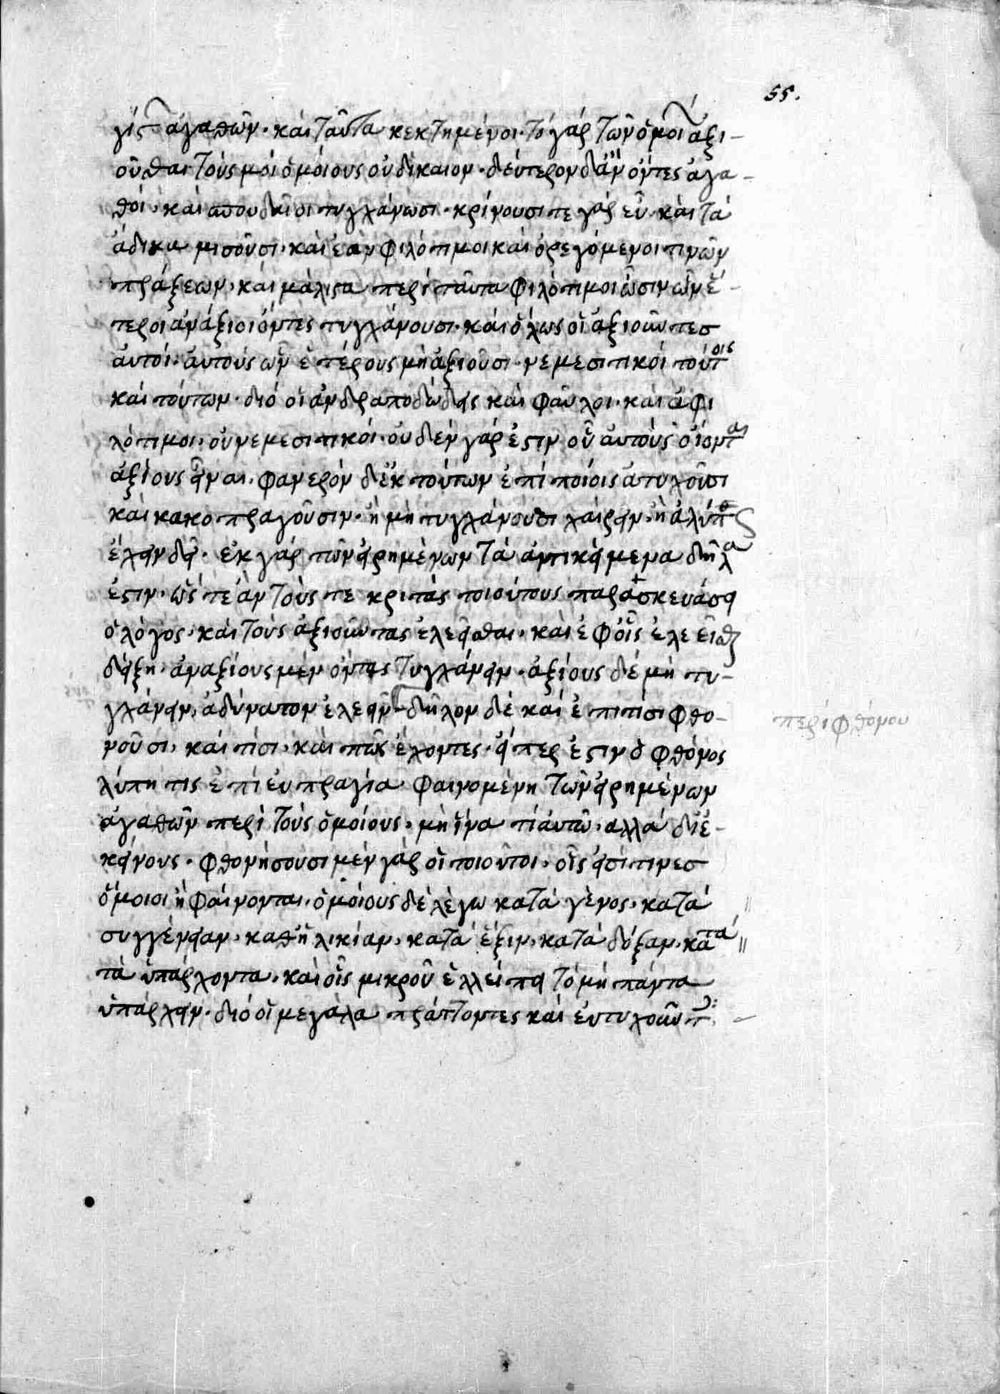 55.
γίστων ἀγαθῶν· καὶ ταῦτα κεκτημένοι· τὸ γὰρ τῶν ὁμοίων ἀξι-
οῦσθαι τοὺς μὴ ὁμοίους οὐ δίκαιον· δεύτερον δ' ἂν ὄντες ἀγα-
θοί· καὶ σπουδαῖοι τυγχάνωσι· κρίνουσί τε γὰρ εὖ· καὶ τὰ
ἄδικα μισοῦσι· καὶ ἐὰν φιλότιμοι καὶ ὀρεγόμενοι τινῶν
πράξεων· καὶ μάλιστα περὶ ταῦτα φιλότιμοι ὦσιν ὧν ἕ-
τεροι ἀνάξιοι ὄντες τυγχάνουσι· καὶ ὅλως οἱ ἀξιοῦντες
αὐτοὶ· αὑτοὺς ὧν ἑτέρους μὴ ἀξιοῦσι· νεμεσητικοὶ τούτοις
καὶ τούτων· διὸ οἱ ἀνδραποδώδεις καὶ φαῦλοι· καὶ ἀφι
λότιμοι· οὐ νεμεσητικοί· οὐδὲν γάρ ἐστιν οὗ αὑτοὺς οἴονται
ἀξίους εἶναι· φανερὸν δ' ἐκ τούτων ἐπὶ ποίοις ἀτυχοῦσι
καὶ κακοπραγοῦσιν· ἢ μὴ τυγχάνουσι χαίρειν· ἢ ἀλύπως
ἔχειν δεῖ· ἐκ γὰρ τῶν εἰρημένων τὰ ἀντικείμενα δῆλα
ἐστιν· ὥστε ἐὰν τούς τε κριτὰς τοιούτους παρασκευάσῃ
ὁ λόγος· καὶ τοὺς ἀξιοῦντας ἐλεεῖσθαι· καὶ ἐφ' οἷς ἐλεεῖσθαι
δείξῃ· ἀναξίους μὲν ὄντας τυγχάνειν· ἀξίους δὲ μὴ τυ-
γχάνειν, ἀδύνατον ἐλεεῖν· δῆλον δὲ καὶ ἐπὶ τίσι φθο-
νοῦσι· καὶ τίσι· καὶ πῶς ἔχοντες· εἴπερ ἐστὶν ὁ φθόνος
περὶ φθόνου
λύπη τις ἐπὶ εὐπραγίᾳ φαινομένῃ τῶν εἰρημένων
ἀγαθῶν περὶ τοὺς ὁμοίους· μὴ ἵνα τι αὑτῷ· ἀλλὰ δι' ἐ-
κείνους· φθονήσουσι μὲν γὰρ οἱ τοιοῦτοι· οἷς εἰσί τινες
ὅμοιοι ἢ φαίνονται· ὁμοίους δὲ λέγω κατὰ γένος· κατὰ
συγγένειαν· καθ' ἡλικίαν· κατὰ ἕξιν· κατὰ δόξαν· κατὰ
τὰ ὑπάρχοντα· καὶ οἷς μικροῦ ἐλλείπει τὸ μὴ πάντα
ὑπάρχειν· διὸ οἱ μεγάλα πράττοντες καὶ εὐτυχοῦντες